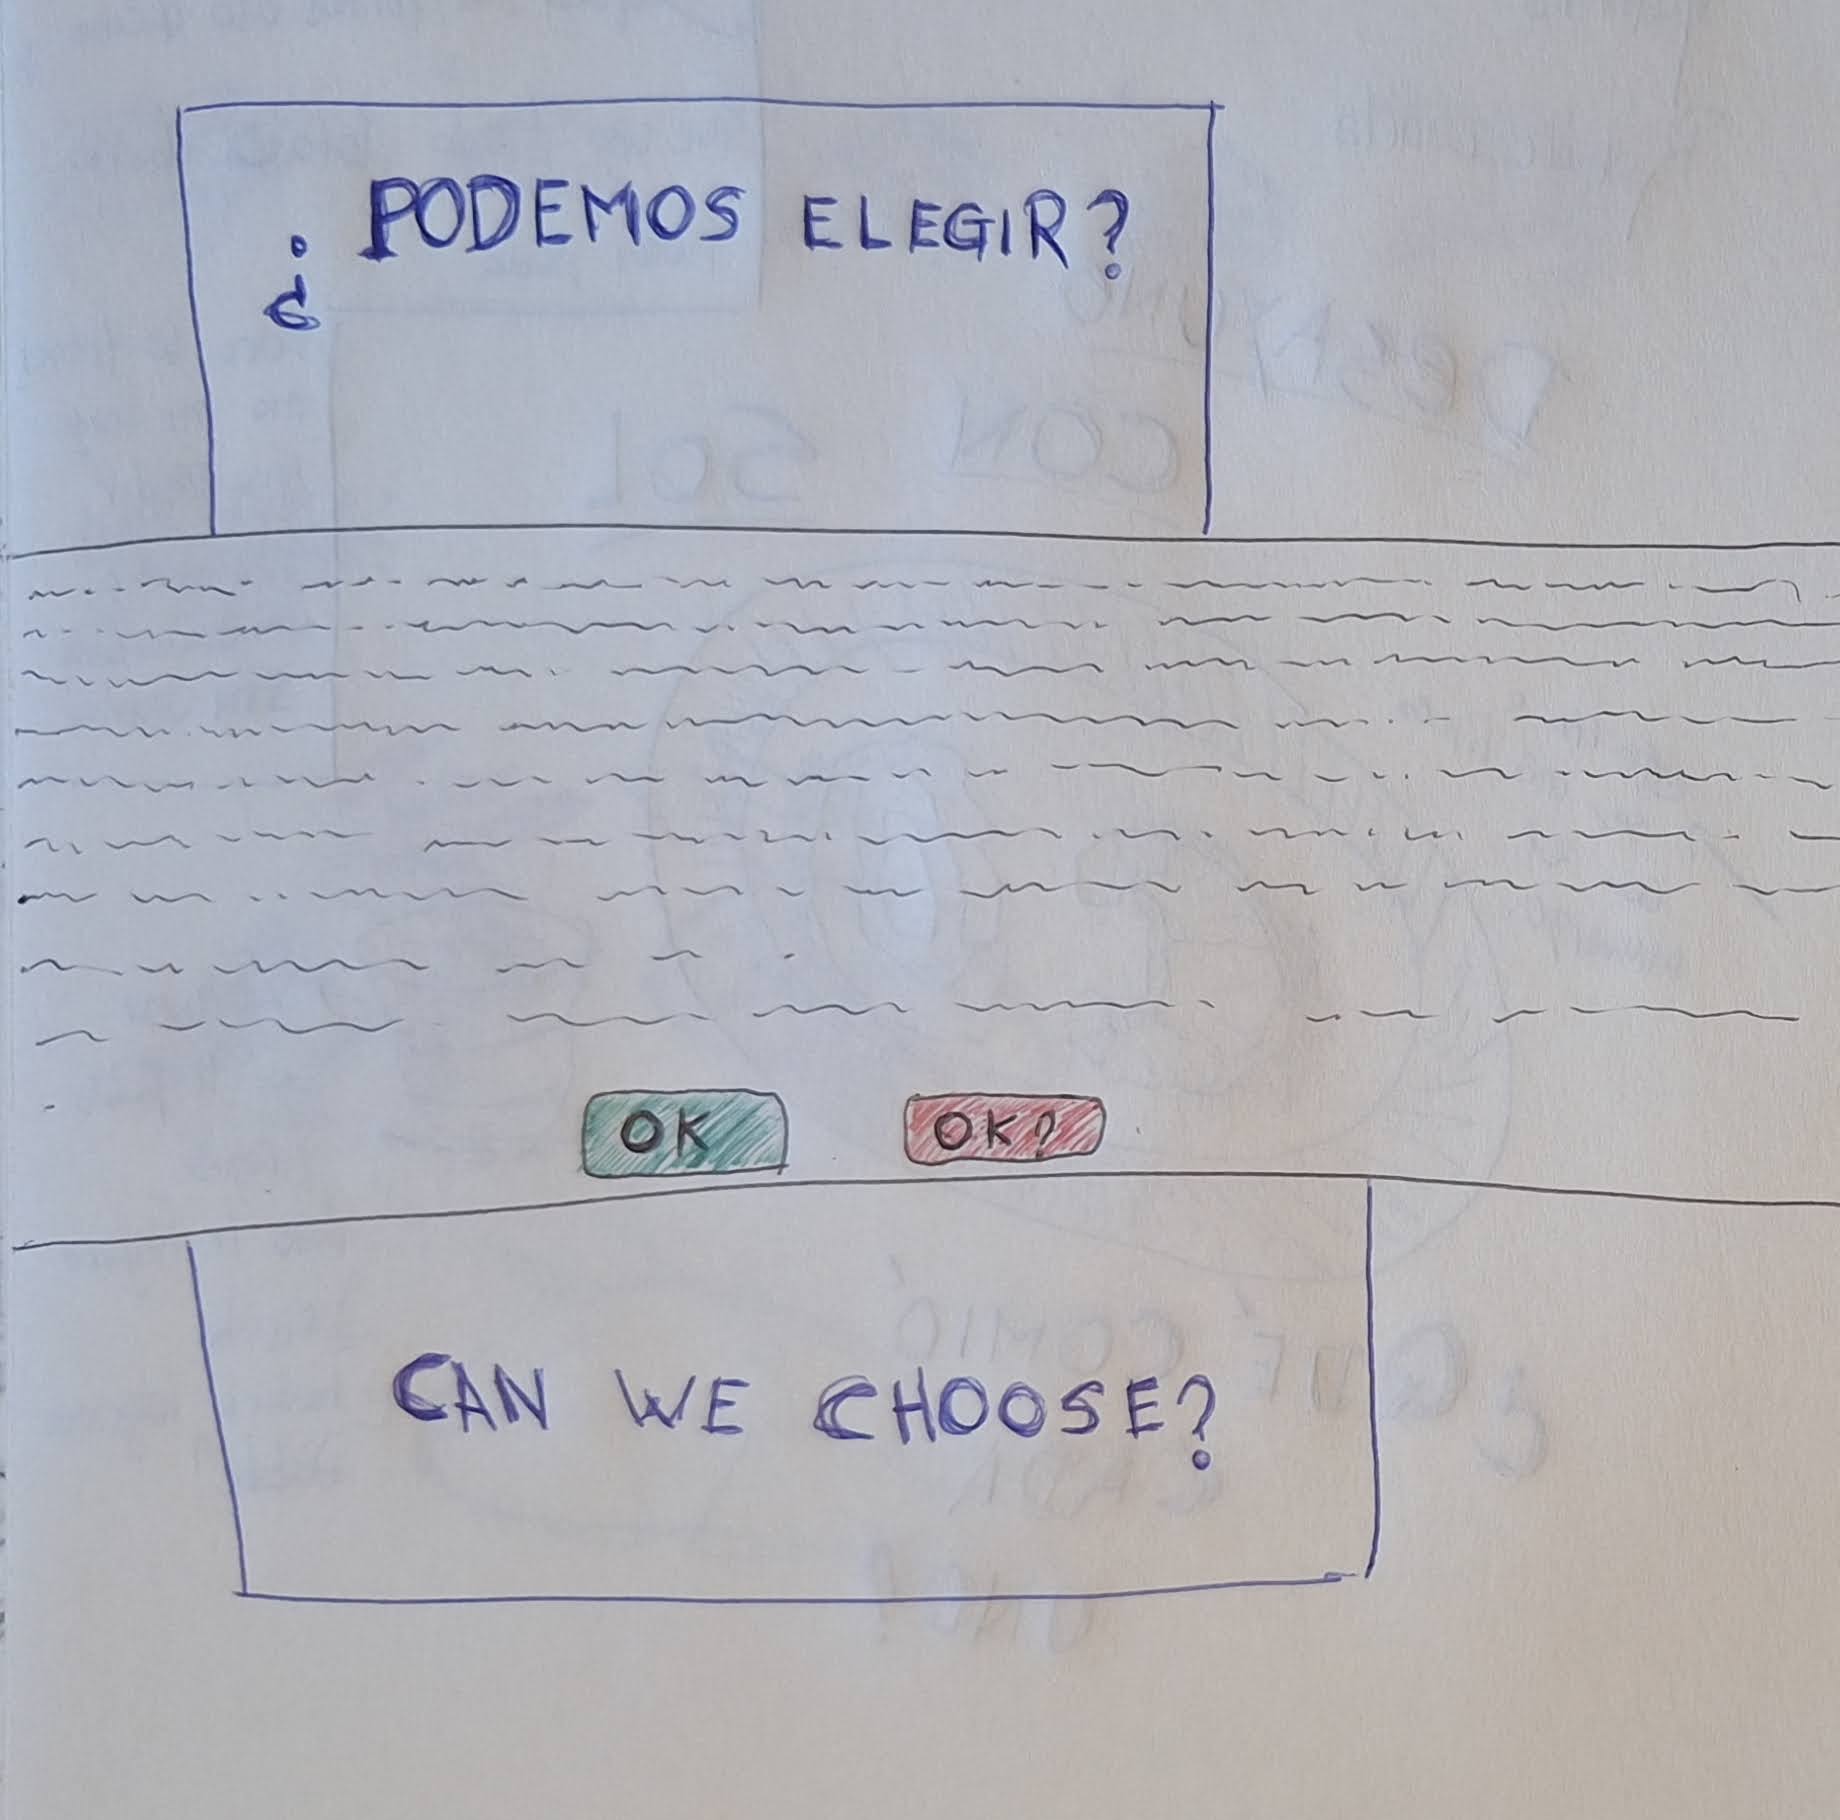 ¿PODEMOS ELEGIR?
OK OK?
CAN WE CHOOSE?